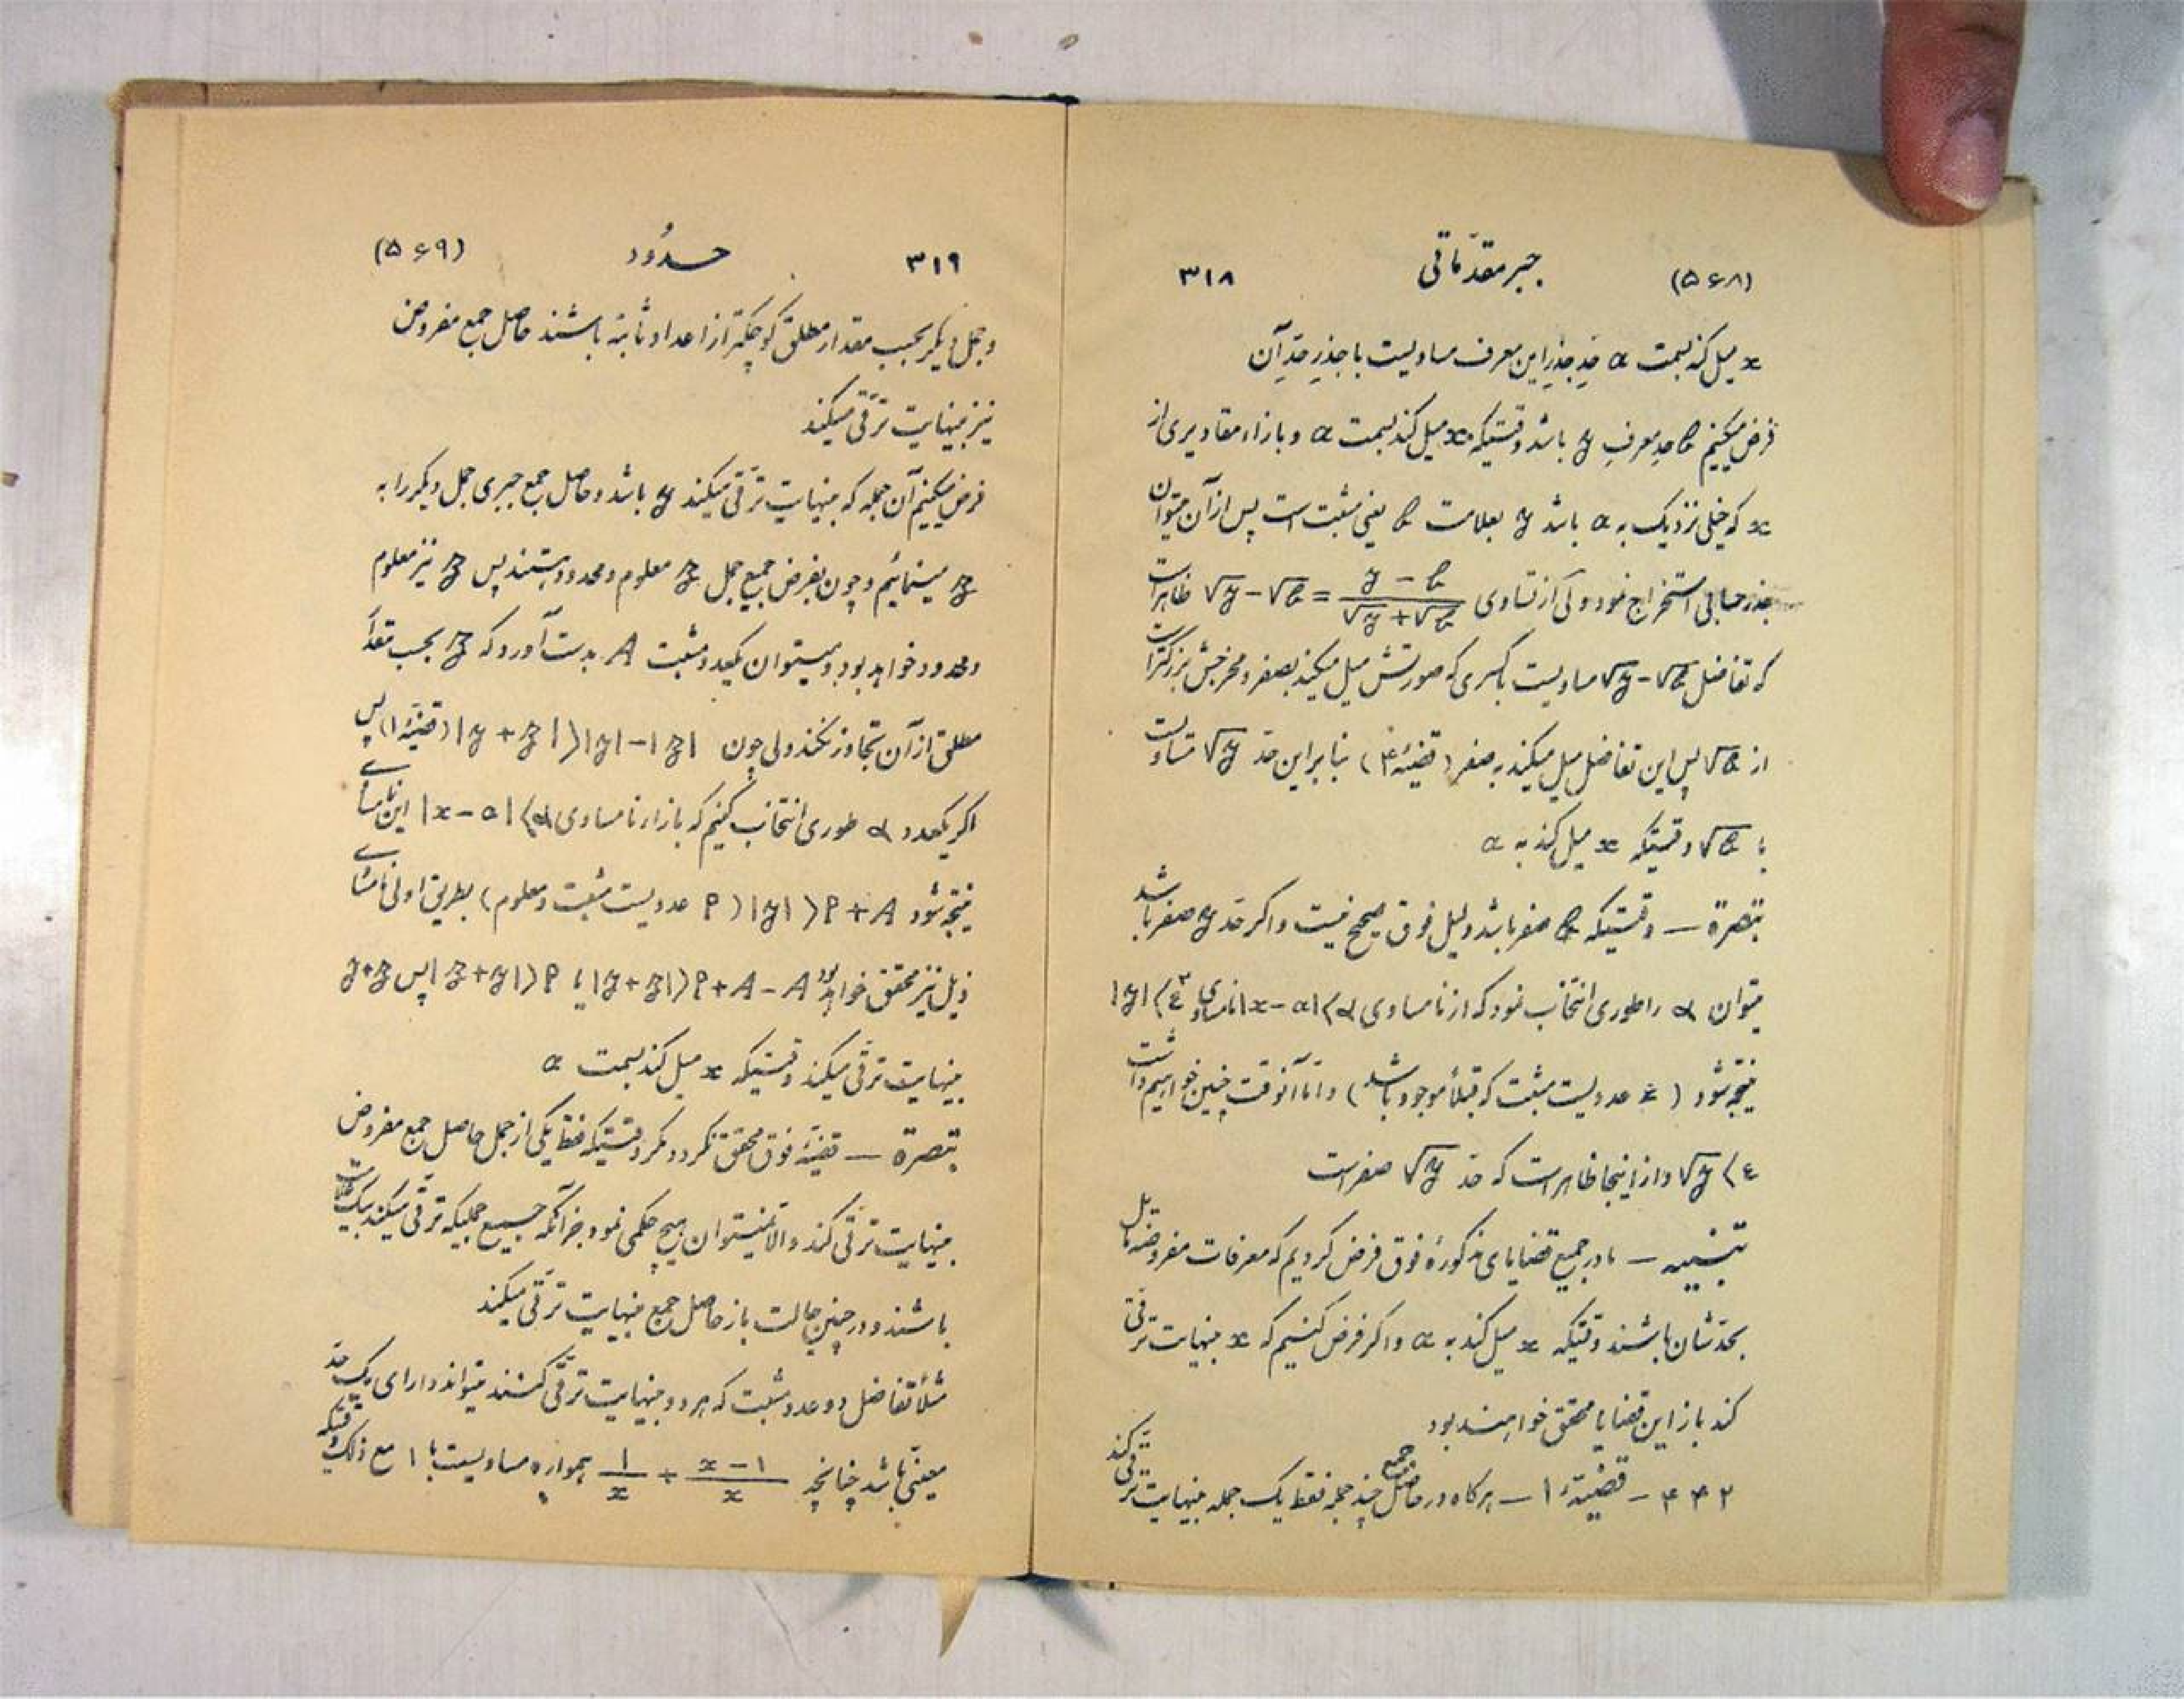 (۵۶۸) جبر مقدّماتی ۳۱۸
x میل کند بسمت a حدِ جذرِ این معرف مساویست با جذرِ حدِّ آن
فرض میکنیم b حدِ معرفِ y باشد وقتیکه x میل کند بسمت a و بازاء مقادیری از
x که خیلی نزدیک به a باشد y بعلامت b یعنی مثبت است پس از آن میتوان
جذر حسابی استخراج نمود ولی از تساوی √y − √b = (y − b)/(√y + √b) ظاهر است
که تفاضل √y − √b مساویست با کسری که صورتش میل میکند بصفر و مخرجش بزرگتر است
از √b پس این تفاضل میل میکند به صفر (قضیّهٔ ۴) بنابراین حدّ √y مساویست
با √b وقتیکه x میل کند به a
تبصرة — وقتیکه b صفر باشد دلیل فوق صحیح نیست و اگر حدّ y صفر باشد
میتوان α را طوری انتخاب نمود که از نامساوی |x − a| < α نامساوی |y| < ε²
نتیجه شود (ε عددیست مثبت که قبلاً موجود باشد) و امّا آنوقت چنین خواهیم داشت
√y < ε و از اینجا ظاهر است که حدّ √y صفر است
تنبیـه — ما در جمیع قضایای مذکورهٔ فوق فرض کردیم که معرفات مفروضه مایل
بحدّشان باشند وقتیکه x میل کند به a و اگر فرض کنیم که x بینهایت ترقی
کند باز این قضایا محقق خواهند بود
۴۴۲ - قضیّهٔ ۱ — هرگاه در حاصل جمع چند جمله فقط یک جمله بینهایت ترقّی کند
۳۱۹ حدُود (۵۶۹)
و جمل دیگر بحسب مقدار مطلق کوچکتر از اعداد ثابته باشند حاصل جمع مفروض
نیز بینهایت ترقّی میکند
فرض میکنیم آن جمله که بینهایت ترقّی میکند y باشد و حاصل جمع جبری جمل دیگر را به
z مینمائیم و چون بفرض جمیع جمل z معلوم و محدود هستند پس z نیز معلوم
و محدود خواهد بود و میتوان یکعدد مثبت A بدست آورد که z بحسب مقدار
مطلق از آن تجاوز نکند ولی چون |y + z| > |y| − |z| (قضیّهٔ ۱) پس
اگر یکعدد α طوری انتخاب کنیم که بازاء نامساوی |x − a| < α این نامساوی
نتیجه شود |y| > P + A (P عددیست مثبت و معلوم) بطریق اولی نامساوی
ذیل نیز محقق خواهد بود |y + z| > P + A − A یا |z + y| > P پس y + z
بینهایت ترقّی میکند وقتیکه x میل کند بسمت a
تبصرة — قضیّهٔ فوق محقق نگردد مگر وقتیکه فقط یکی از جمل حاصل جمع مفروض
بینهایت ترقّی کند والّا نمیتوان هیچ حکمی نمود جز آنکه جمیع جملیکه ترقّی میکند بیک علامت
باشند و در چنین حالت باز حاصل جمع بینهایت ترقّی میکند
مثلاً تفاضل دو عدد مثبت که هر دو بینهایت ترقّی کنند میتواند دارای یک حدّ
معیّنی باشد چنانچه (x − ۱)/x + ۱/x همواره مساویست با ۱ مع ذلک وقتیکه